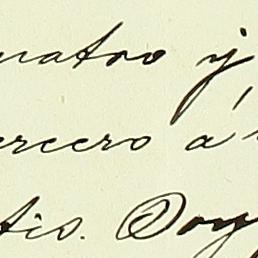 uatro y
ercero á
tio. Doy